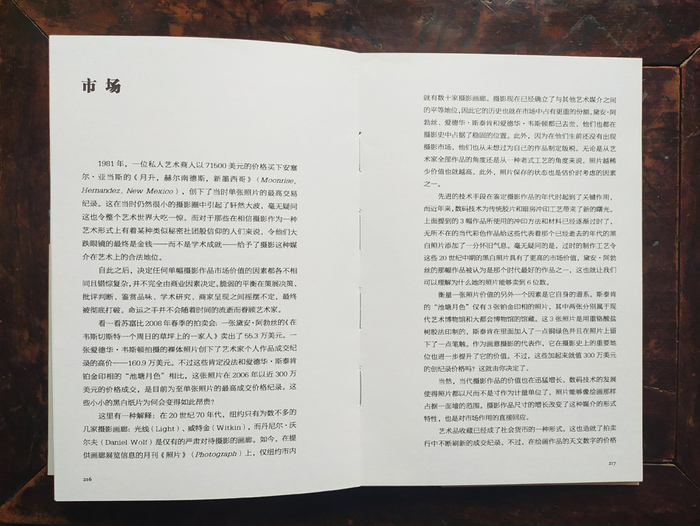 市场
1981 年，一位私人艺术商人以 71500 美元的价格买下安塞
尔·亚当斯的《月升，赫尔南德斯，新墨西哥》（Moonrise,
Hernandez, New Mexico），创下了当时单张照片的最高交易
纪录。这在当时仍然很小的摄影圈中引起了轩然大波，毫无疑问
这也令整个艺术世界大吃一惊，而对于那些在相信摄影作为一种
艺术形式上有着某种类似秘密社团般信仰的人们来说，令他们大
跌眼镜的最终是金钱——而不是学术成就——给予了摄影这种媒
介在艺术上的合法地位。
自此之后，决定任何单幅摄影作品市场价值的因素都各不相
同且错综复杂，并不完全由商业因素决定。脆弱的平衡在策展决策、
批评判断、鉴赏品味、学术研究、商家呈现之间摇摆不定，最终
被彻底打破。命运之手并不会随着时间的流逝而眷顾艺术家。
看一看苏富比 2008 年春季的拍卖会：一张黛安·阿勃丝的《在
韦斯切斯特一个周日的草坪上的一家人》卖出了 55.3 万美元。一
张爱德华·韦斯顿拍摄的裸体照片创下了艺术家个人作品成交纪
录的高价——160.9 万美元。不过这些肯定没法和爱德华·斯泰肯
铂金印相的“池塘月色”相比，这张照片在 2006 年以近 300 万
美元的价格成交，是目前为至单张照片的最高成交价格纪录。这
些小小的黑白纸片为何会变得如此昂贵？
这里有一种解释：在 20 世纪 70 年代，纽约只有为数不多的
几家摄影画廊：光线（Light）、威特金（Witkin），而丹尼尔·沃
尔夫（Daniel Wolf）是仅有的严肃对待摄影的画廊。如今，在提
供画廊展览信息的月刊《照片》（Photograph）上，仅纽约市内
216
就有数十家摄影画廊。摄影现在已经确立了与其他艺术媒介之间
的平等地位，因此它的历史也就在市场中占有更重的份额。黛安·阿
勃丝、爱德华·斯泰肯和爱德华·韦斯顿都已去世，他们也都在
摄影史中占据了稳固的位置。此外，因为在他们生前还没有出现
摄影市场，他们也从未想过为自己的作品制定版税。无论是从艺
术家全部作品的角度还是从一种老式工艺的角度来说，照片越稀
少价值也就越高。此外，照片保存的状态也是估价时考虑的因素
之一。
先进的技术手段在鉴定摄影作品的年代时起到了关键作用，
而近年来，数码技术为传统胶片和暗房冲印工艺带来了新的曙光。
上面提到的 3 幅作品所使用的冲印方法和材料已经逐渐过时了，
无所不在的当代彩色作品给这些代表着那个已经逝去的年代的黑
白照片添加了一分怀旧气息。毫无疑问的是，过时的制作工艺令
这些 20 世纪中期的黑白照片具有了更高的市场价值。黛安·阿勃
丝的那幅作品被认为是那个时代最好的作品之一，这也就让我们
可以理解为什么她的照片能够卖到 6 位数。
衡量一张照片价值的另外一个因素是它自身的谱系。斯泰肯
的“池塘月色”仅有 3 张铂金印相的照片，其中两张分别属于现
代艺术博物馆和大都会博物馆的馆藏。这 3 张照片是用重铬酸盐
树胶法印制的，斯泰肯在里面加入了一点铜绿色并且在照片上留
下了一点笔触。作为画意摄影的代表作，它在摄影史上的重要地
位也进一步提升了它的价值。不过，这些加起来就值 300 万美元
的创纪录价格吗？这就由你决定了。
当然，当代摄影作品的价值也在迅猛增长。数码技术的发展
使得照片都以尺而不是寸作为计量单位了，照片能够像绘画那样
占据一面墙的范围。摄影作品尺寸的增长改变了这种媒介的形式
特性，也是对市场作用的直接回应。
艺术品收藏已经成了社会货币的一种形式。这也造就了拍卖
行中不断刷新的成交纪录。不过，在绘画作品的天文数字的价格
217